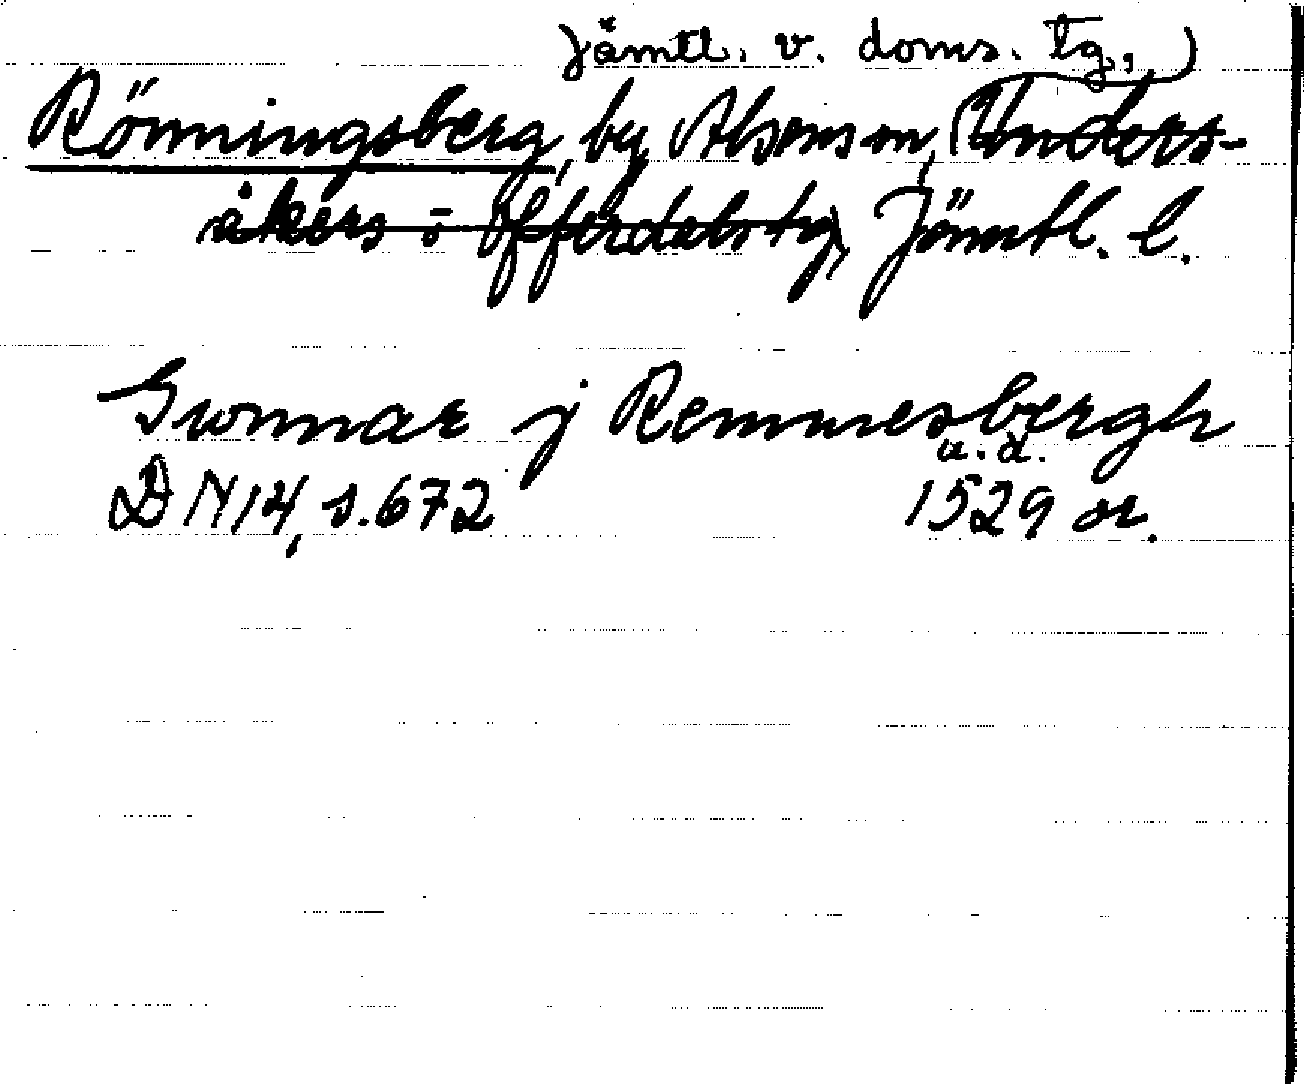 Jämtl. v. doms. tg,
Rönningsberg, by, Alsens sn, Unders-
åkers o Offerdals tg, Jämtl. l.
Gwnnar j Remmesbergh
u.d.
DN 14, s. 672 1529 or.